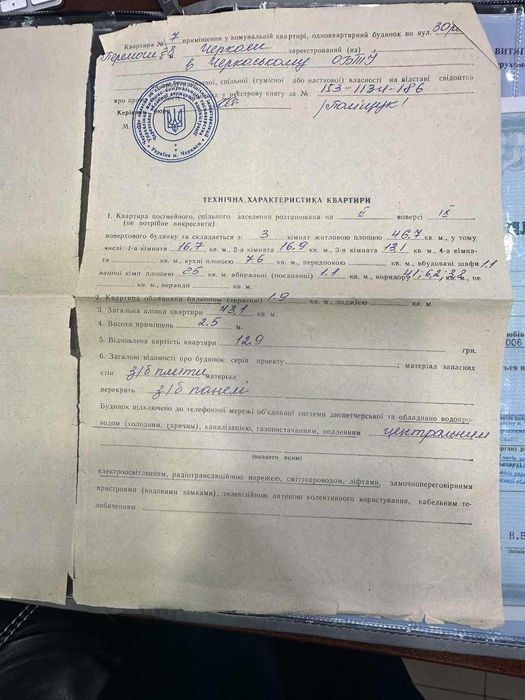 Квартира № 7 приміщення у комунальній квартирі, одноквартирний будинок по вул. 30 р.
Перемоги 28 Черкаси зареєстрований (на)
в Черкаському ОБТІ
спільної (сумісної або часткової) власності на підставі свідоцтва
про у реєстрову книгу за № 153-1134-186
Кер
М.
Україна м. Черкаси
ТЕХНІЧНА ХАРАКТЕРИСТИКА КВАРТИРИ
1. Квартира посімейного, спільного заселення розташована на ІІ поверсі ІХ
(не потрібне викреслити)
поверхового будинку та складається з: 3 кімнат житловою площею 46,7 кв. м., у тому
числі: 1-а кімната 16,7 кв. м, 2-а кімната 16,9 кв. м, 3-я кімната 13,1 кв. м, 4-а кімна-
та кв. м, кухні площею 7.6 кв. м, передпокою кв. м, вбудовані шафи 1.1
ванної кімн. площею кв. м, вбиральні (поєднаної) 1.1 кв. м, коридору кв. м, не
кв. м, веранди кв. м.
2. Квартира обладнана балконом (терасою) 1,9 кв. м, лоджією кв. м.
3. Загальна площа квартири кв. м.
4. Висота приміщень 2.5 м.
5. Відновлена вартість квартири 129 грн.
6. Загальні відомості про будинок: серія проекту ; матеріал запасних
стін з/б плити, матеріал
перекрить з/б панелі
Будинок підключено до телефонної мережі об'єднаної системи диспетчерської та обладнано водопро-
водом (холодним, гарячим), каналізацією, газопостачанням, опаленням центральним
(вказати яким)
електроосвітленням, радіотрансляційною мережею, сміттєпроводом, ліфтами, замочнопереговірними
пристроями (кодовими замками), телевізійною антеною колективного користування, кабельним те-
лебаченням
ВИТЯГ
006
Н.В